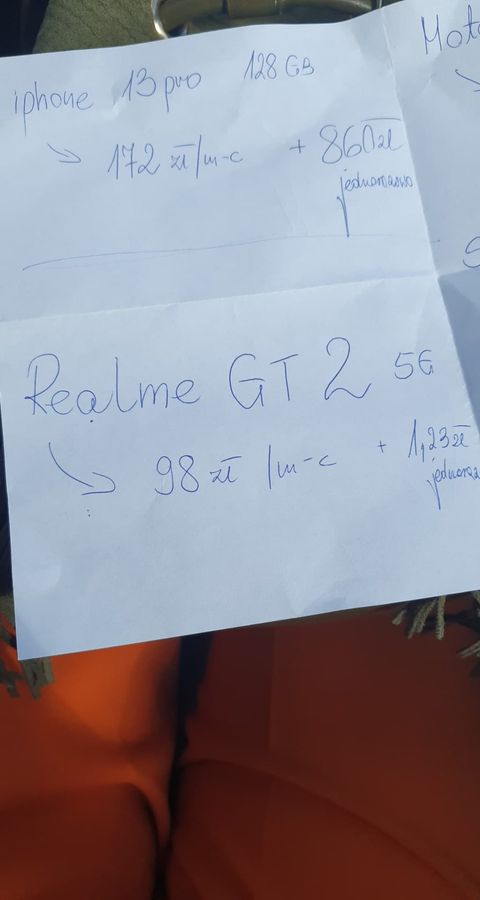 iphone 13 pro 128 GB
172 zł/m-c + 860zł
jednorazowo
Realme GT 2 5G
98 zł /m-c + 1,23zł